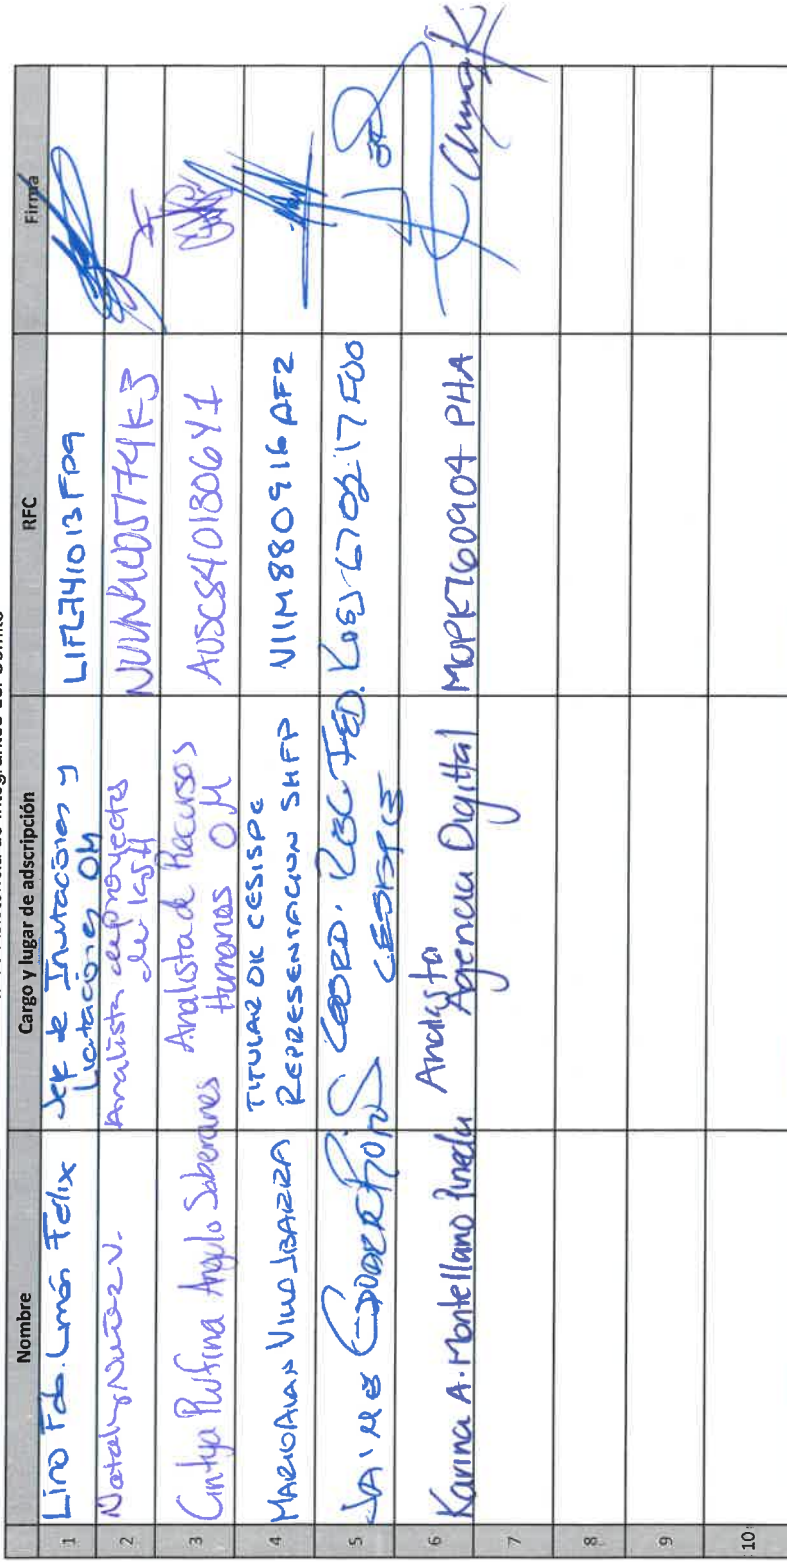 Nombre Cargo y lugar de adscripción RFC Firma
1 Lino Fdo. Limón Felix Jefe de Invitaciones y Licitaciones OM LIFL741013FP9
2 Nataly Nuñez V. Analista de proyectos de
3 Cintya Rufina Angulo Soberanes Analista de Recursos Humanos OM AUSC8401306Y1
4 MARIO ALAN VILLO IBARRA TITULAR OIC CESISPE REPRESENTACION SHFP VIIM880916AF2
5 JAIME COORD. FED. CESISPE
6 Karina A. Montellano Pineda Analista Agencia Digital MOPK760904 PHA
7
8
9
10